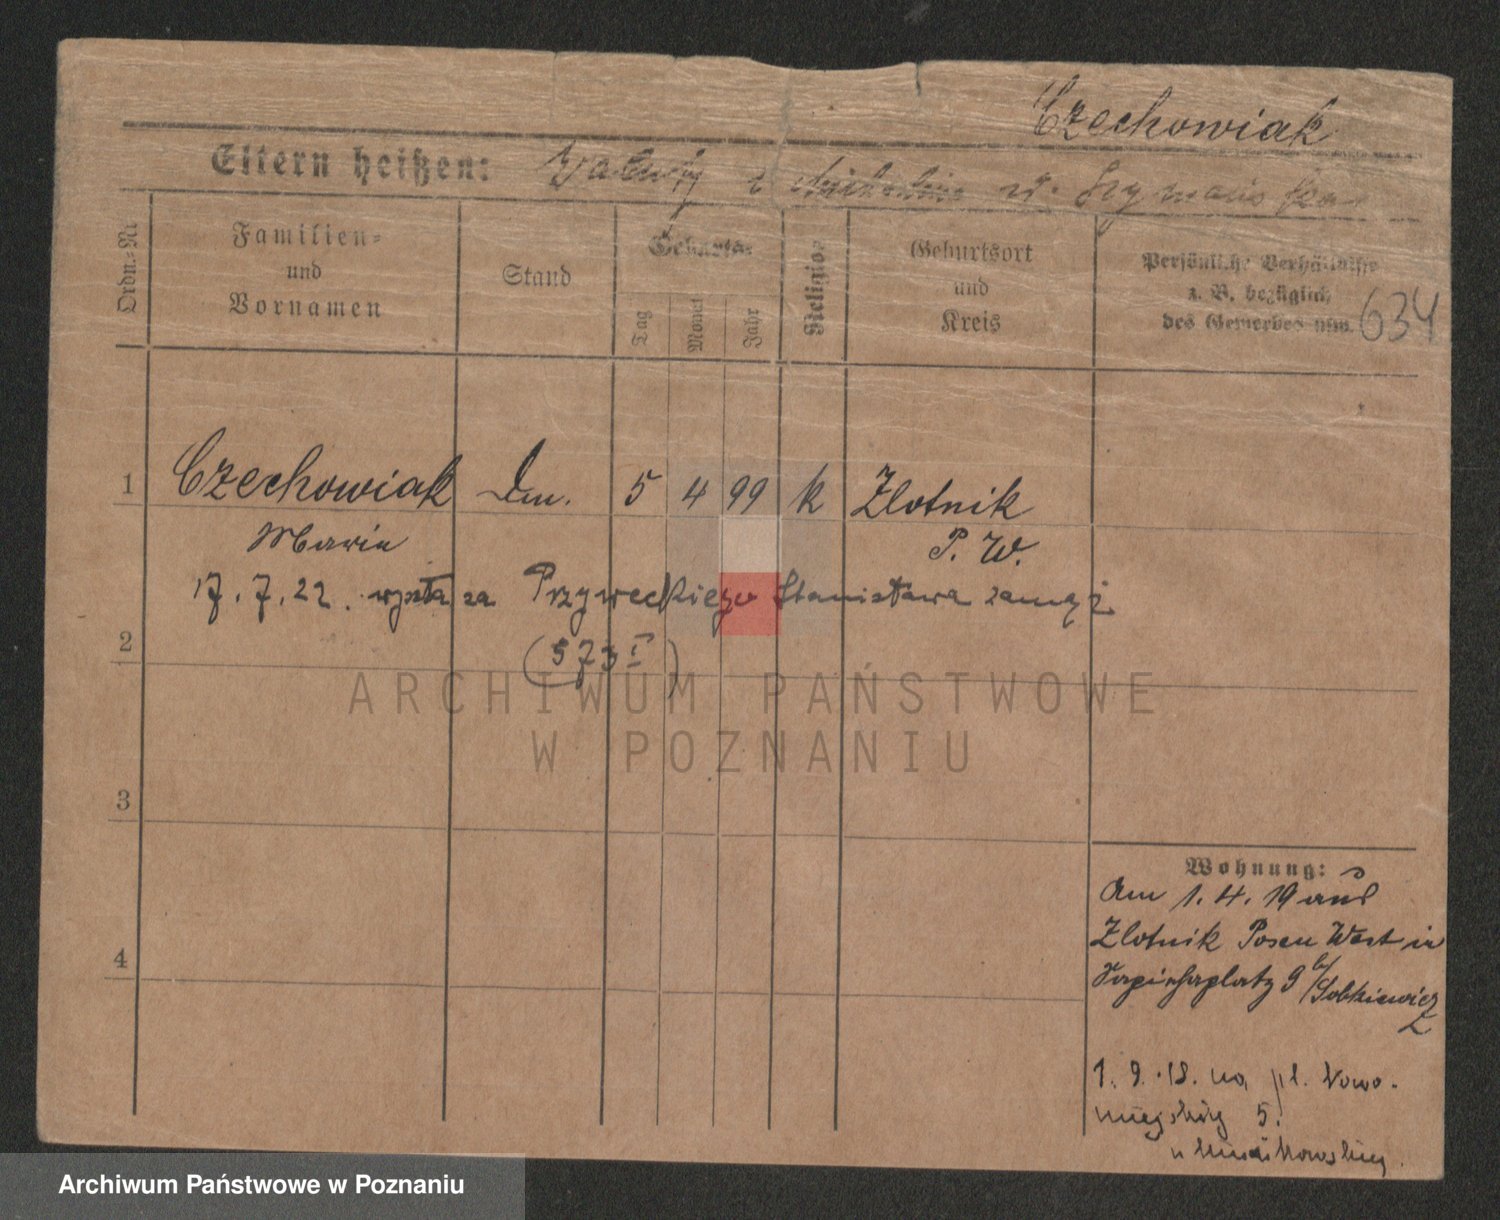 Czechowiak
Eltern heißen: Walenty i Michalina d. Szymańska
Ordn.-Nr.
Familien-
und
Vornamen
Stand
Geburts-
Tag
Monat
Jahr
Religion
Geburtsort
und
Kreis
Persönliche Verhältnisse
z. B. bezüglich
des Gewerbes usw.
634
1 Czechowiak 5 4 99 k Zlotnik
Maria P. W.
17.7.22. wyszła za Przyweckiego Stanisława zamąż
2 (573 I)
3
4
Wohnung:
Am 1.4.19 aus
Zlotnik Posen West in
Sapiehaplatz 9 b/Sobkiewicz
1.9. na pl. Nowo-
miejskiej 5.
u
ARCHIWUM PAŃSTWOWE
W POZNANIU
Archiwum Państwowe w Poznaniu